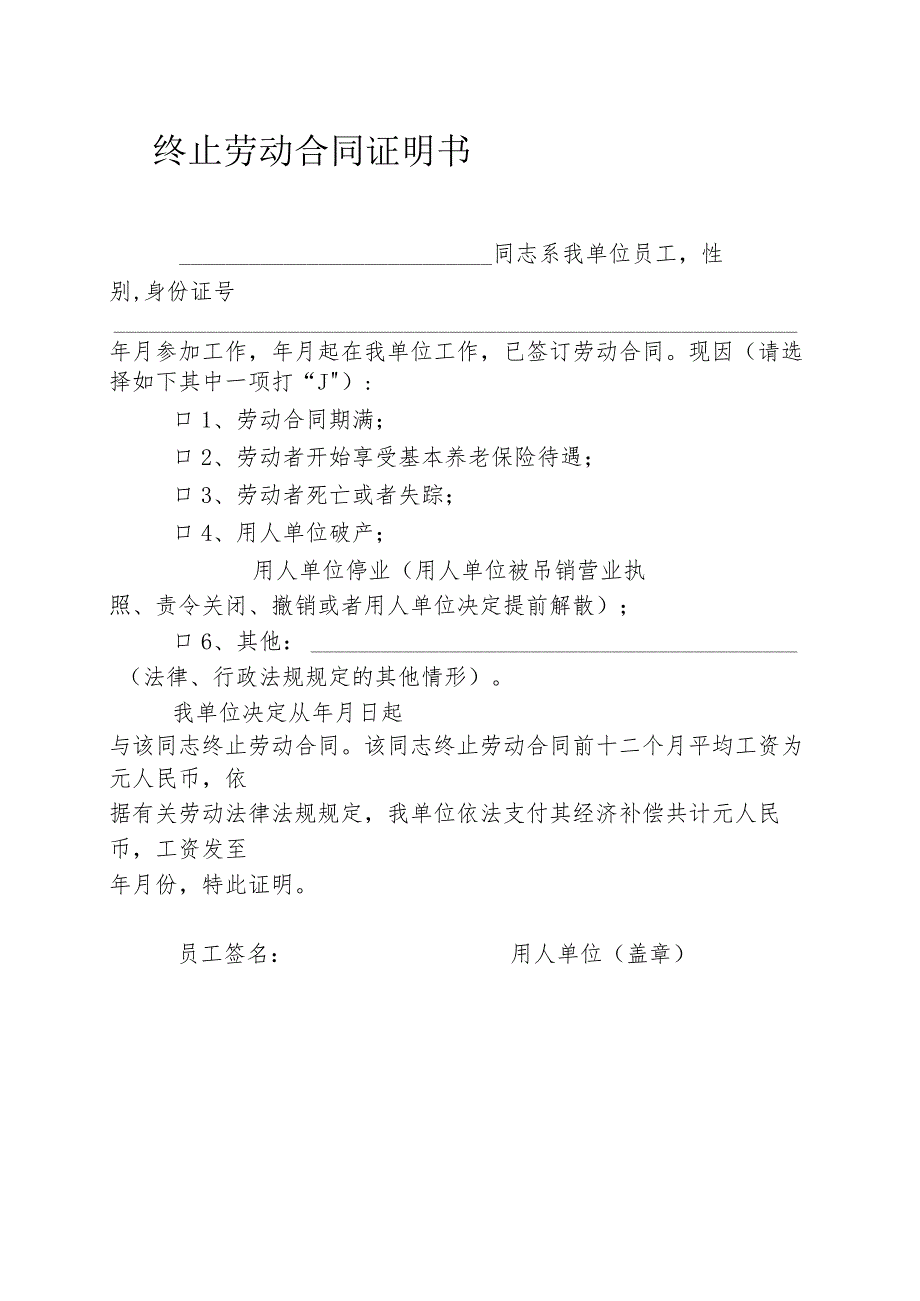 终止劳动合同证明书
___________________________同志系我单位员工，性
别,身份证号
___________________________________________________________
年月参加工作，年月起在我单位工作，已签订劳动合同。现因（请选
择如下其中一项打“J"）:
口1、劳动合同期满；
口2、劳动者开始享受基本养老保险待遇；
口3、劳动者死亡或者失踪；
口4、用人单位破产；
用人单位停业（用人单位被吊销营业执
照、责令关闭、撤销或者用人单位决定提前解散）；
口6、其他：__________________________________________
（法律、行政法规规定的其他情形）。
我单位决定从年月日起
与该同志终止劳动合同。该同志终止劳动合同前十二个月平均工资为
元人民币，依
据有关劳动法律法规规定，我单位依法支付其经济补偿共计元人民
币，工资发至
年月份，特此证明。
员工签名： 用人单位（盖章）